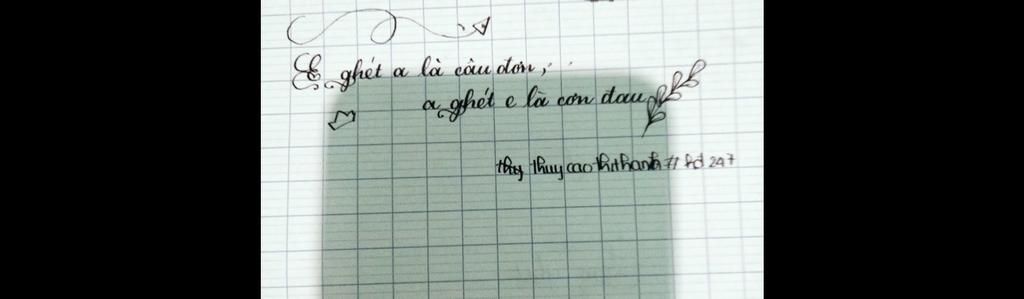 E ghét a là câu đơn,
a ghét e là cơn đau
thuy cao thi thanh # hd 247